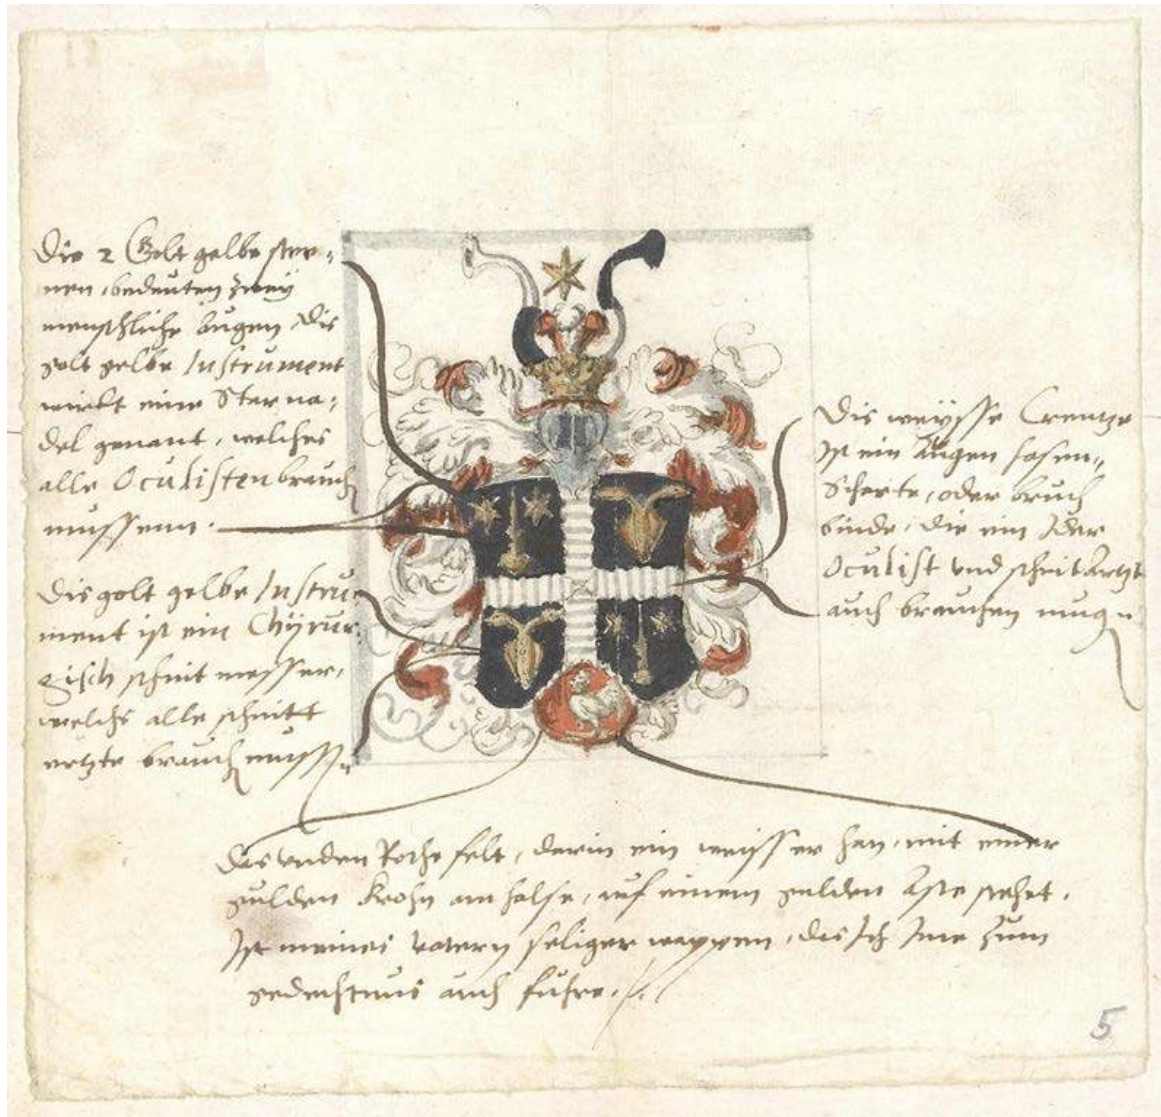 Die 2 Golt gelbe ster¬
nen, bedeuten zwey
menschliche Augen, Dis
golt gelbe Instrument
wirdt eine Starna¬
del genant, welches
alle Oculisten brauch
mussenn.
Dis golt gelbe Instru¬
ment ist ein Chyrur¬
gisch schnit messer,
welchs alle schnitt
ertzte brauch muss¬
Dis weysse Creutze
Ist ein Augen
oder bruch
binde, die ein Ider
Oculist vnd schnit Artzt
auch brauchen mug
Das vnden Rothe felt, darin ein weisser han, mit einer
gulden Krohn am halse, uf einem gulden Aste stehet,
Ist meines vatern seliger wappen, das Ich Ime zum
gedechtnus auch fuhre.
5